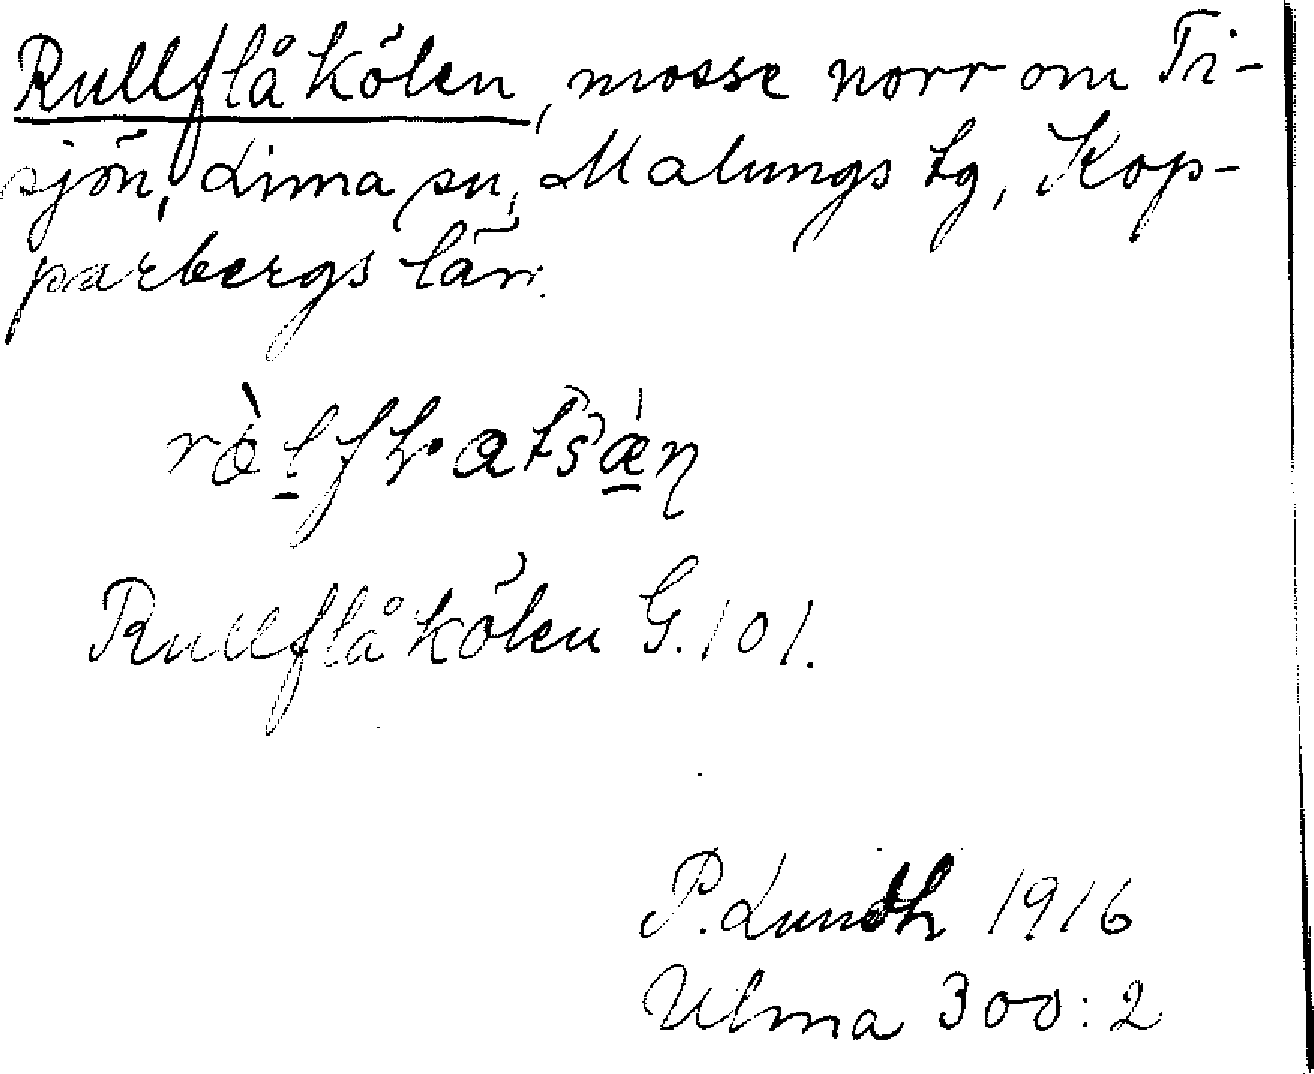 Rullflåkölen, mosse norr om Ti-
sjön, Lima sn, Malungs tg, Kop-
parbergs län.
Rullflåkölen G.101.
P. Lundh 1916
Ulma 300:2